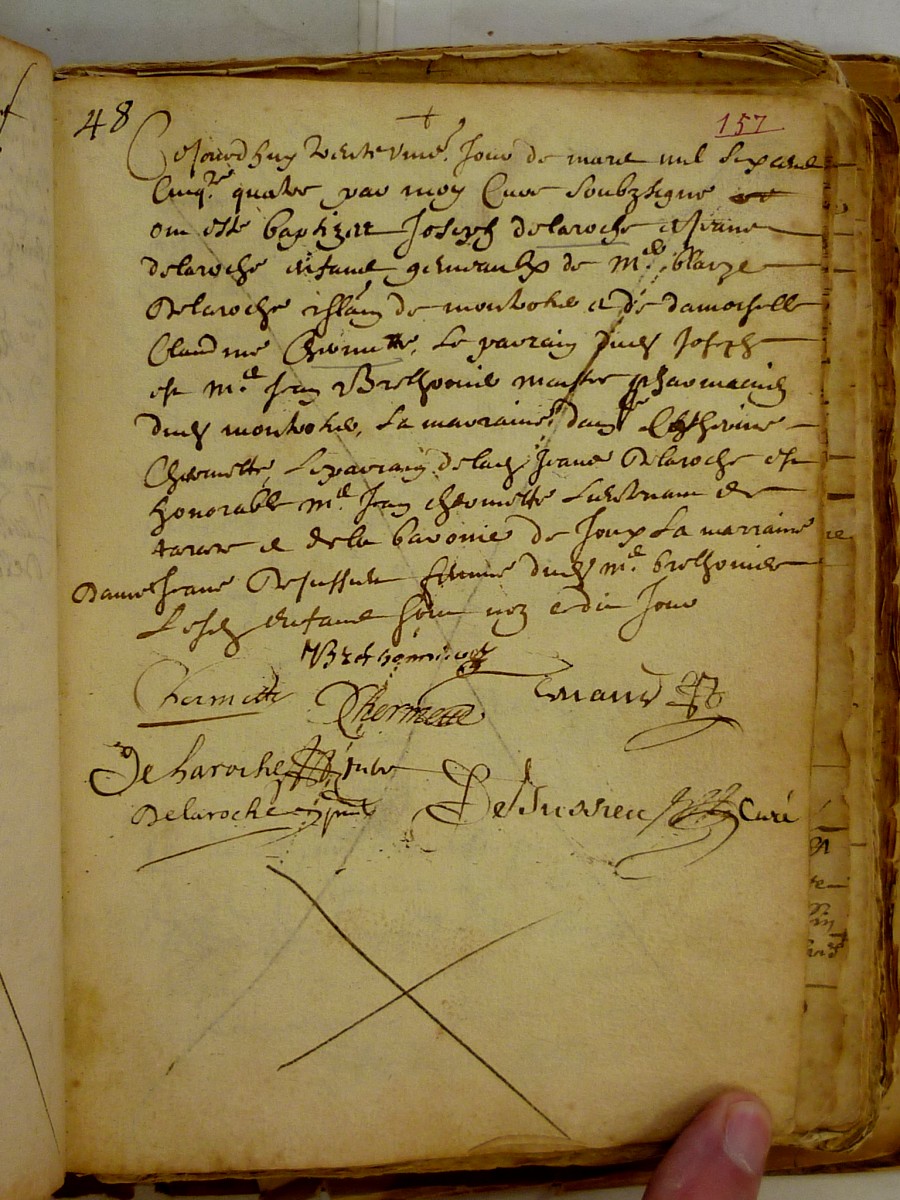 48
157
Cejourdhuy trente uniesme Jour de mars mil six cent
Cinqte quatre par moy Curé Soubzsigné
ont esté baptizez Joseph delaroche et Jeanne
delaroche enfans gemeaulx de Me Blayze
Delaroche de montrotier et de damoiselle
Claudine Chermette, Le parrain dudt Joseph
est Me Jean Brethonier maistre pharmacien
dudt montrotier, La marraine dame Catherine
Chermette, Le parrain de ladt Jeanne Delaroche est
honorable Me Jean chermette Lieutenant de
tarare et de la baronie de Joux La marraine
Dame Jeanne Dejussieu femme dudt Me brethonier
Lesdts enfans sont nez cedit Jour
Brethonier
Chermette
Chermette
Delaroche
Delaroche
DeJussieu Curé